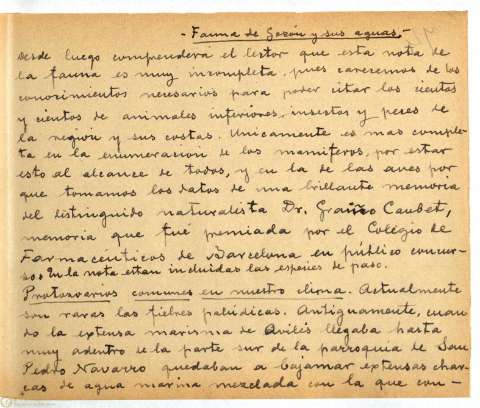 - Fauna de Gozón y sus aguas. -
Desde luego comprenderá el lector que esta nota de
la fauna es muy incompleta, pues carecemos de los
conocimientos necesarios para poder citar los cientos
y cientos de animales inferiores, insectos y peces de
la región y sus costas. Unicamente es mas comple-
ta en la enumeración de los mamiferos, por estar
esto al alcance de todos, y en la de las aves por
que tomamos los datos de una brillante memoria
del distinguido naturalista Dr. Graiño Caubet,
memoria que fué premiada por el Colegio de
Farmacéuticos de Barcelona en público concur-
so. En la nota estan incluidas las especies de paso.
Protozoarios comunes en nuestro clima. Actualmente
son raras las fiebres palúdicas. Antiguamente, cuan
do la extensa marisma de Avilés llegaba hasta
muy adentro de la parte sur de la parroquia de San
Pedro Navarro quedaban a bajamar extensas char-
cas de agua marina mezclada con la que con-